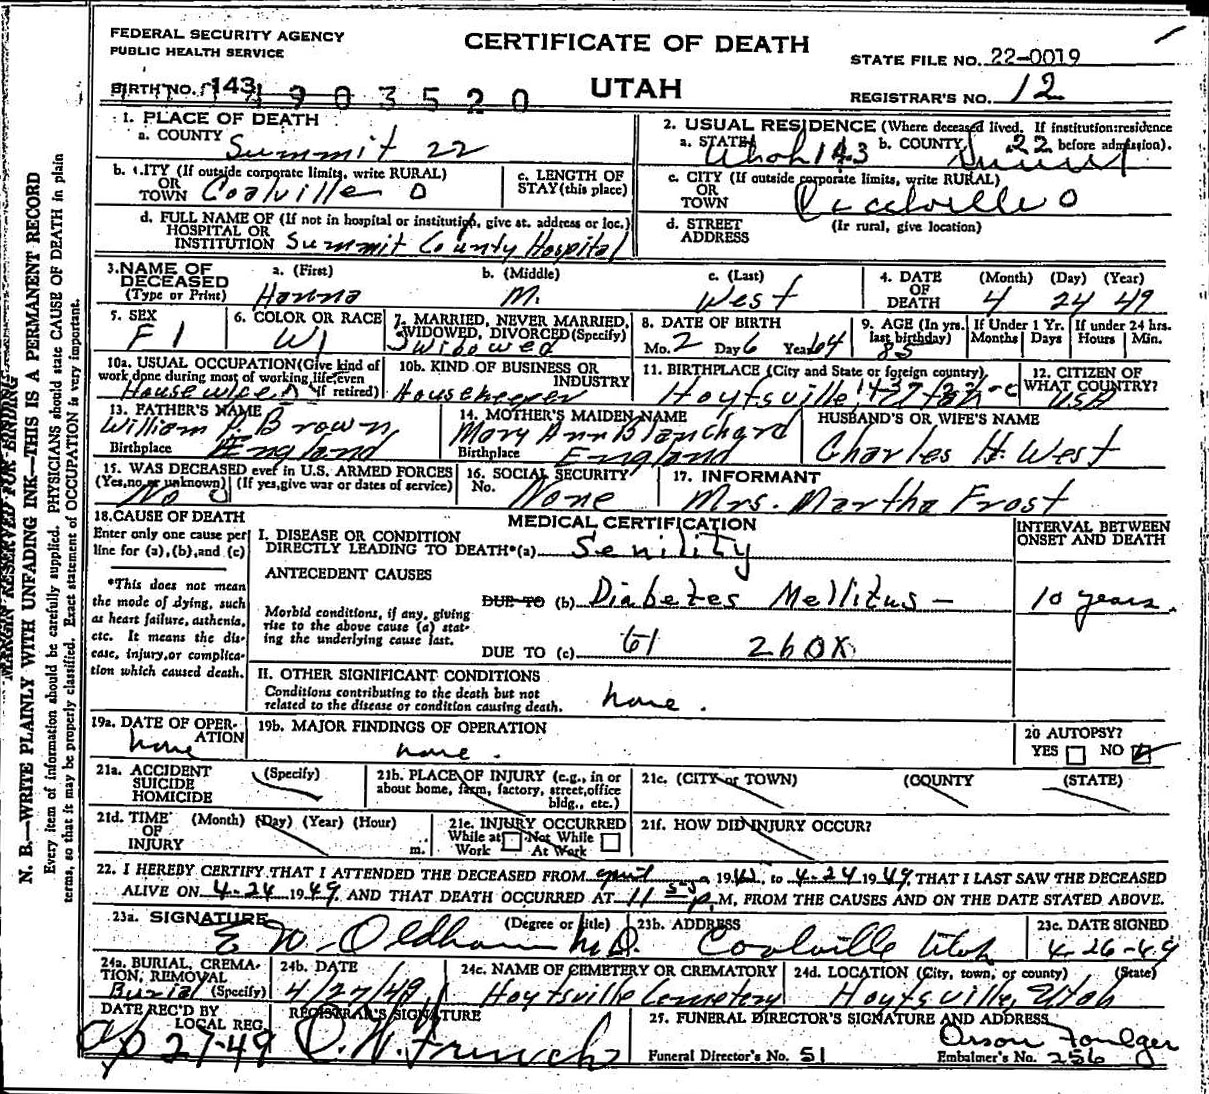 FEDERAL SECURITY AGENCY
PUBLIC HEALTH SERVICE
CERTIFICATE OF DEATH
UTAH
STATE FILE NO. 22-0019
BIRTH NO. 143 1903520
REGISTRAR'S NO. 12
1. PLACE OF DEATH
a. COUNTY Summit 22
b. CITY (If outside corporate limits, write RURAL) OR TOWN Coalville 0
c. LENGTH OF STAY (this place)
d. FULL NAME OF (If not in hospital or institution, give st. address or loc.)
HOSPITAL OR
INSTITUTION Summit County Hospital
2. USUAL RESIDENCE (Where deceased lived. If institution:residence before admission).
a. STATE Utah 143 b. COUNTY Summit 22
c. CITY (If outside corporate limits, write RURAL)
OR
TOWN Coalville 0
d. STREET ADDRESS (Ir rural, give location)
3. NAME OF DECEASED (Type or Print)
a. (First) Hanna
b. (Middle) M.
c. (Last) West
4. DATE OF DEATH (Month) (Day) (Year) 4 24 49
5. SEX F 1
6. COLOR OR RACE W1
7. MARRIED, NEVER MARRIED, WIDOWED, DIVORCED (Specify) 3 Widowed
8. DATE OF BIRTH Mo. 2 Day 6 Year 64
9. AGE (In yrs. last birthday) 85
If Under 1 Yr. Months Days
If under 24 hrs. Hours Min.
10a. USUAL OCCUPATION (Give kind of work done during most of working life, even if retired) Housewife
10b. KIND OF BUSINESS OR INDUSTRY Housekeeper
11. BIRTHPLACE (City and State or foreign country) Hoytsville Utah
12. CITIZEN OF WHAT COUNTRY? USA
13. FATHER'S NAME William P. Brown
Birthplace England
14. MOTHER'S MAIDEN NAME Mary Ann Blanchard
Birthplace England
HUSBAND'S OR WIFE'S NAME
Charles H. West
15. WAS DECEASED ever in U.S. ARMED FORCES
(Yes, no, or unknown) (If yes, give war or dates of service) No 0
16. SOCIAL SECURITY No. None
17. INFORMANT
Mrs. Martha Frost
18. CAUSE OF DEATH
Enter only one cause per line for (a), (b), and (c)
*This does not mean the mode of dying, such as heart failure, asthenia, etc. It means the disease, injury, or complication which caused death.
MEDICAL CERTIFICATION
INTERVAL BETWEEN ONSET AND DEATH
I. DISEASE OR CONDITION
DIRECTLY LEADING TO DEATH*(a) Senility
ANTECEDENT CAUSES
DUE TO (b) Diabetes Mellitus - 10 years.
Morbid conditions, if any, giving rise to the above cause (a) stating the underlying cause last.
DUE TO (c) 61 260X
II. OTHER SIGNIFICANT CONDITIONS
Conditions contributing to the death but not related to the disease or condition causing death. none.
19a. DATE OF OPERATION none
19b. MAJOR FINDINGS OF OPERATION
none.
20 AUTOPSY?
YES NO
21a. ACCIDENT SUICIDE HOMICIDE (Specify)
21b. PLACE OF INJURY (e.g., in or about home, farm, factory, street, office bldg., etc.)
21c. (CITY or TOWN) (COUNTY (STATE)
21d. TIME OF INJURY (Month) (Day) (Year) (Hour) m.
21e. INJURY OCCURRED While at Work Not While At Work
21f. HOW DID INJURY OCCUR?
22. I HEREBY CERTIFY THAT I ATTENDED THE DECEASED FROM April 19 to 4-24 1949. THAT I LAST SAW THE DECEASED
ALIVE ON 4-24 1949. AND THAT DEATH OCCURRED AT 11 55 p.M, FROM THE CAUSES AND ON THE DATE STATED ABOVE.
23a. SIGNATURE (Degree or title)
E W. Oldham M.D.
23b. ADDRESS
Coalville Utah
23c. DATE SIGNED
4-26-49
24a. BURIAL, CREMATION, REMOVAL (Specify) Burial
24b. DATE
4/27/49
24c. NAME OF CEMETERY OR CREMATORY
Hoytsville Cemetery
24d. LOCATION (City, town, or county) (State)
Hoytsville, Utah
DATE REC'D BY LOCAL REG. Ap 27-49
REGISTRAR'S SIGNATURE
25. FUNERAL DIRECTOR'S SIGNATURE AND ADDRESS
Orson Foulger
Funeral Director's No. 51
Embalmer's No. 256
MARGIN RESERVED FOR BINDING
N. B.—WRITE PLAINLY WITH UNFADING INK—THIS IS A PERMANENT RECORD
Every item of information should be carefully supplied. PHYSICIANS should state CAUSE OF DEATH in plain
terms, so that it may be properly classified. Exact statement of OCCUPATION is very important.